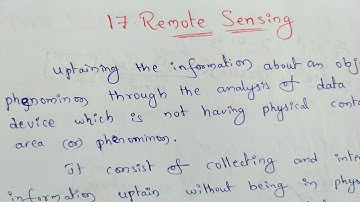 17. Remote Sensing
uptaining the information about an obj
phenominon through the analysis of data
device which is not having physical conta
area (or) phenominon.
It consist of collecting and int
information uptain without being in phys